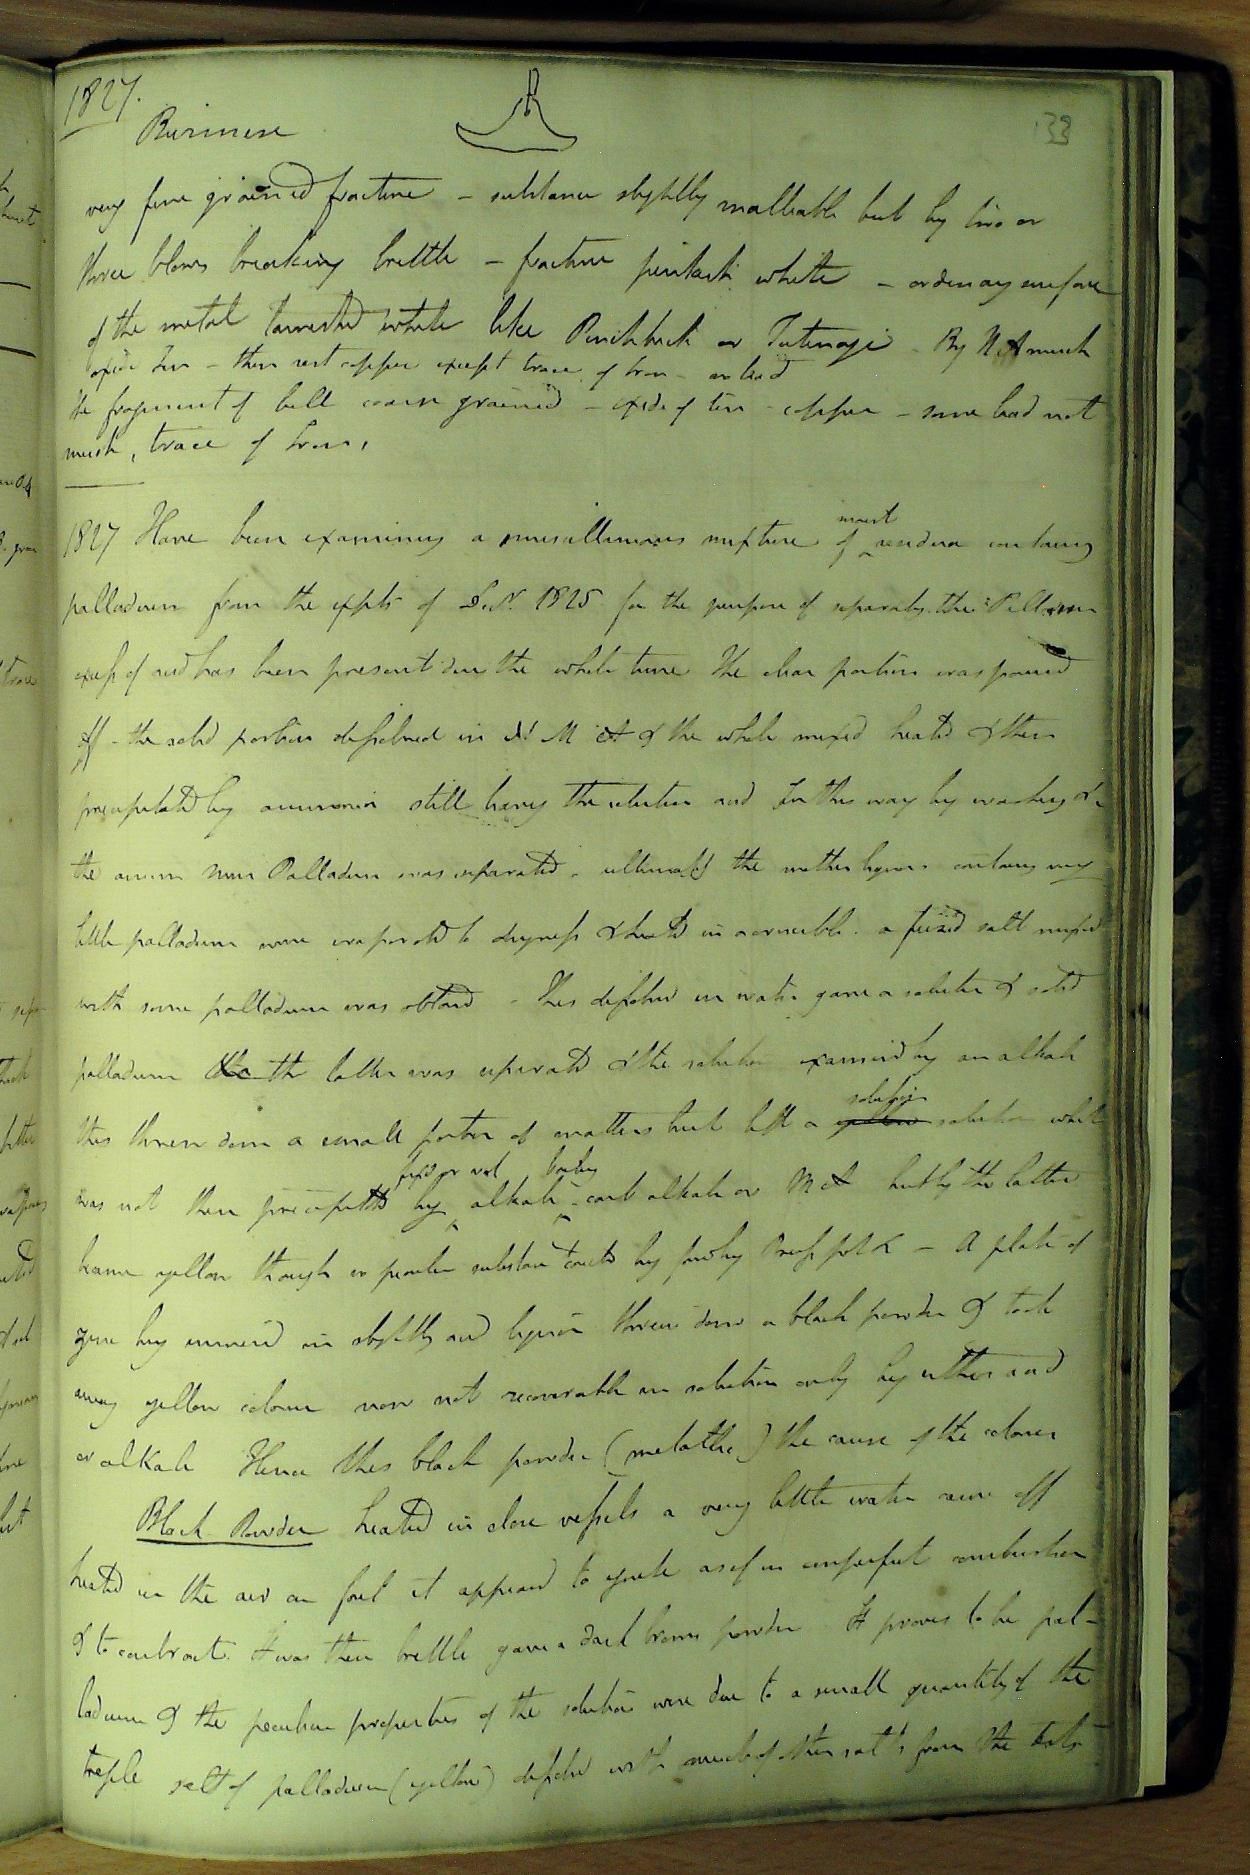 1827.
33
Burmese
very fine grained fracture - substance slightly malleable but by two or
three blows breaking brittle - fracture pinkish white - ordinary surface
of the metal tarnished white like Pinchback or Tutenage - By N A much
oxide tin - then rest copper except trace of Iron - no lead
The fragment of bell coarse grained - oxide of tin - copper - some lead not
much, trace of Iron,
1827 Have been examining a miscellaneous mixture of moist residua containing
palladium from the expts of 1825 for the purpose of separating the Palladium
excess of acid has been present due the whole time The clear portion was poured
off - the solid portion dissolved in N M A & the whole mixed heated & then
precipitated by ammonia still leaving the solution acid In this way by washing &c
the amm mur Palladium was separated - ultimately the mother liquors containing very
little palladium were evaporated to dryness & heated in a crucible. a fuzed salt mixed
with some palladium was obtaind - This dissolved in water gave a solution & solid
palladium the latter was separated & the solution examined by an alkali
this threw down a small portion of matters but left a solution which
was not then precipitated by fixed or vol alkali - boiling carb alkali or M A but by the latter
became yellow though no peculiar substance could by Pruss pot &c - A plate of
zinc by immersed in slightly acid liquor threw down a black powder & took
away yellow colour now not recoverable in solution only by either acid
or alkali Hence this black powder (metallic) the cause of the colour
Black Powder heated in close vessels a very little water came off
heated in the air on foil it appeared to ignite as if in imperfect combustion
& to contract. It was then brittle gave a dark brown powder It proves to be pal-
ladium & the peculiar properties of the solution were due to a small quantity of the
triple salt of palladium (yellow) dissolved with much of other salts from the